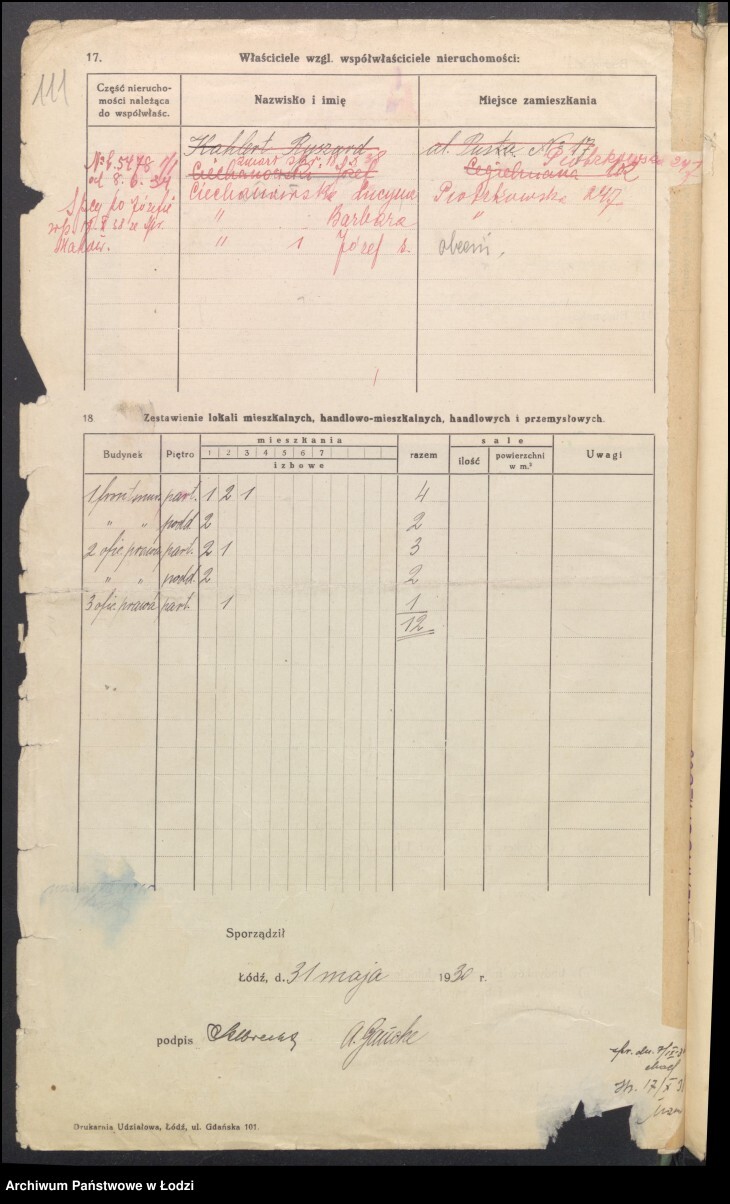 111
17. Właściciele wzgl. współwłaściciele nieruchomości:
Część nierucho-
mości należąca
do współwłaśc.
Nazwisko i imię
Miejsce zamieszkania
Kahlert Ryszard al. Puska No 17
Piotrkowska 247
Ciechanowski Józef Cegielniana 62
od 8. 6. 34 Ciechanowska Lucyna Piotrkowska 247
" Barbara "
" Józef s.
18 Zestawienie lokali mieszkalnych, handlowo-mieszkalnych, handlowych i przemysłowych.
Budynek Piętro mieszkania razem sale Uwagi
1 2 3 4 5 6 7
izbowe
ilość powierzchni
w m.²
1 front mur. part. 1 2 1 4
" " podd. 2 2
2 ofic. prawa part. 2 1 3
" " podd. 2 2
3 ofic. prawa part. 1 1
12
Sporządził
Łódź, d. 31 maja 1930 r.
podpis
Drukarnia Udziałowa, Łódź, ul. Gdańska 101.
Archiwum Państwowe w Łodzi